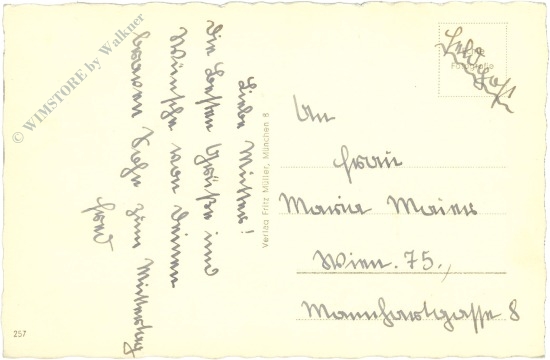 © WIMSTORE by Walkner
Liebe Mutter!
Die besten Grüße und
Wünsche von Deinem
braven Sohn zum Muttertag
Fred
Verlag Fritz Müller, München 8
Feldpost
Fotografie
An
Frau
Maria Maier
Wien. 75.,
Mannhartgasse 8
257